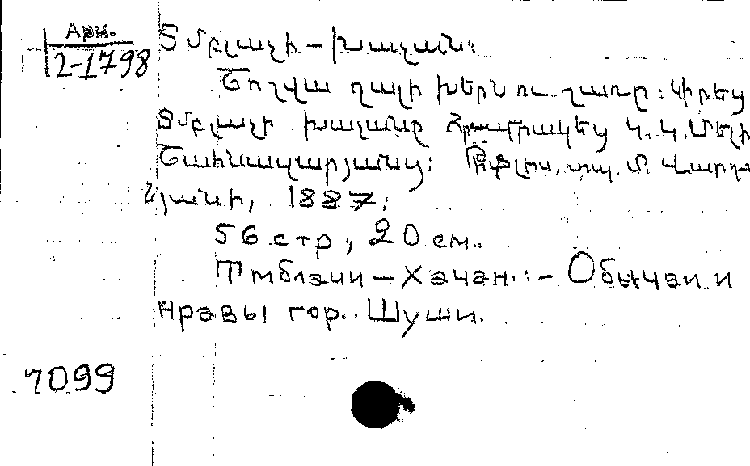 Арм.
2-1798
Տմբլաչի – խաչան:
Շուշվա ղալի խերն ու շառը: Գրեց
Տմբլաչի խաչանը Հրատարակեց Կ. Կ. Մելիք
Շահնազարյանց: Թիֆլիս, տպ. Մ. Վարդա
նյանի, 1887:
56 стр, 20 см.
Тмблачи – Хачан.: – Обычаи и
нравы гор. Шуши.
7099